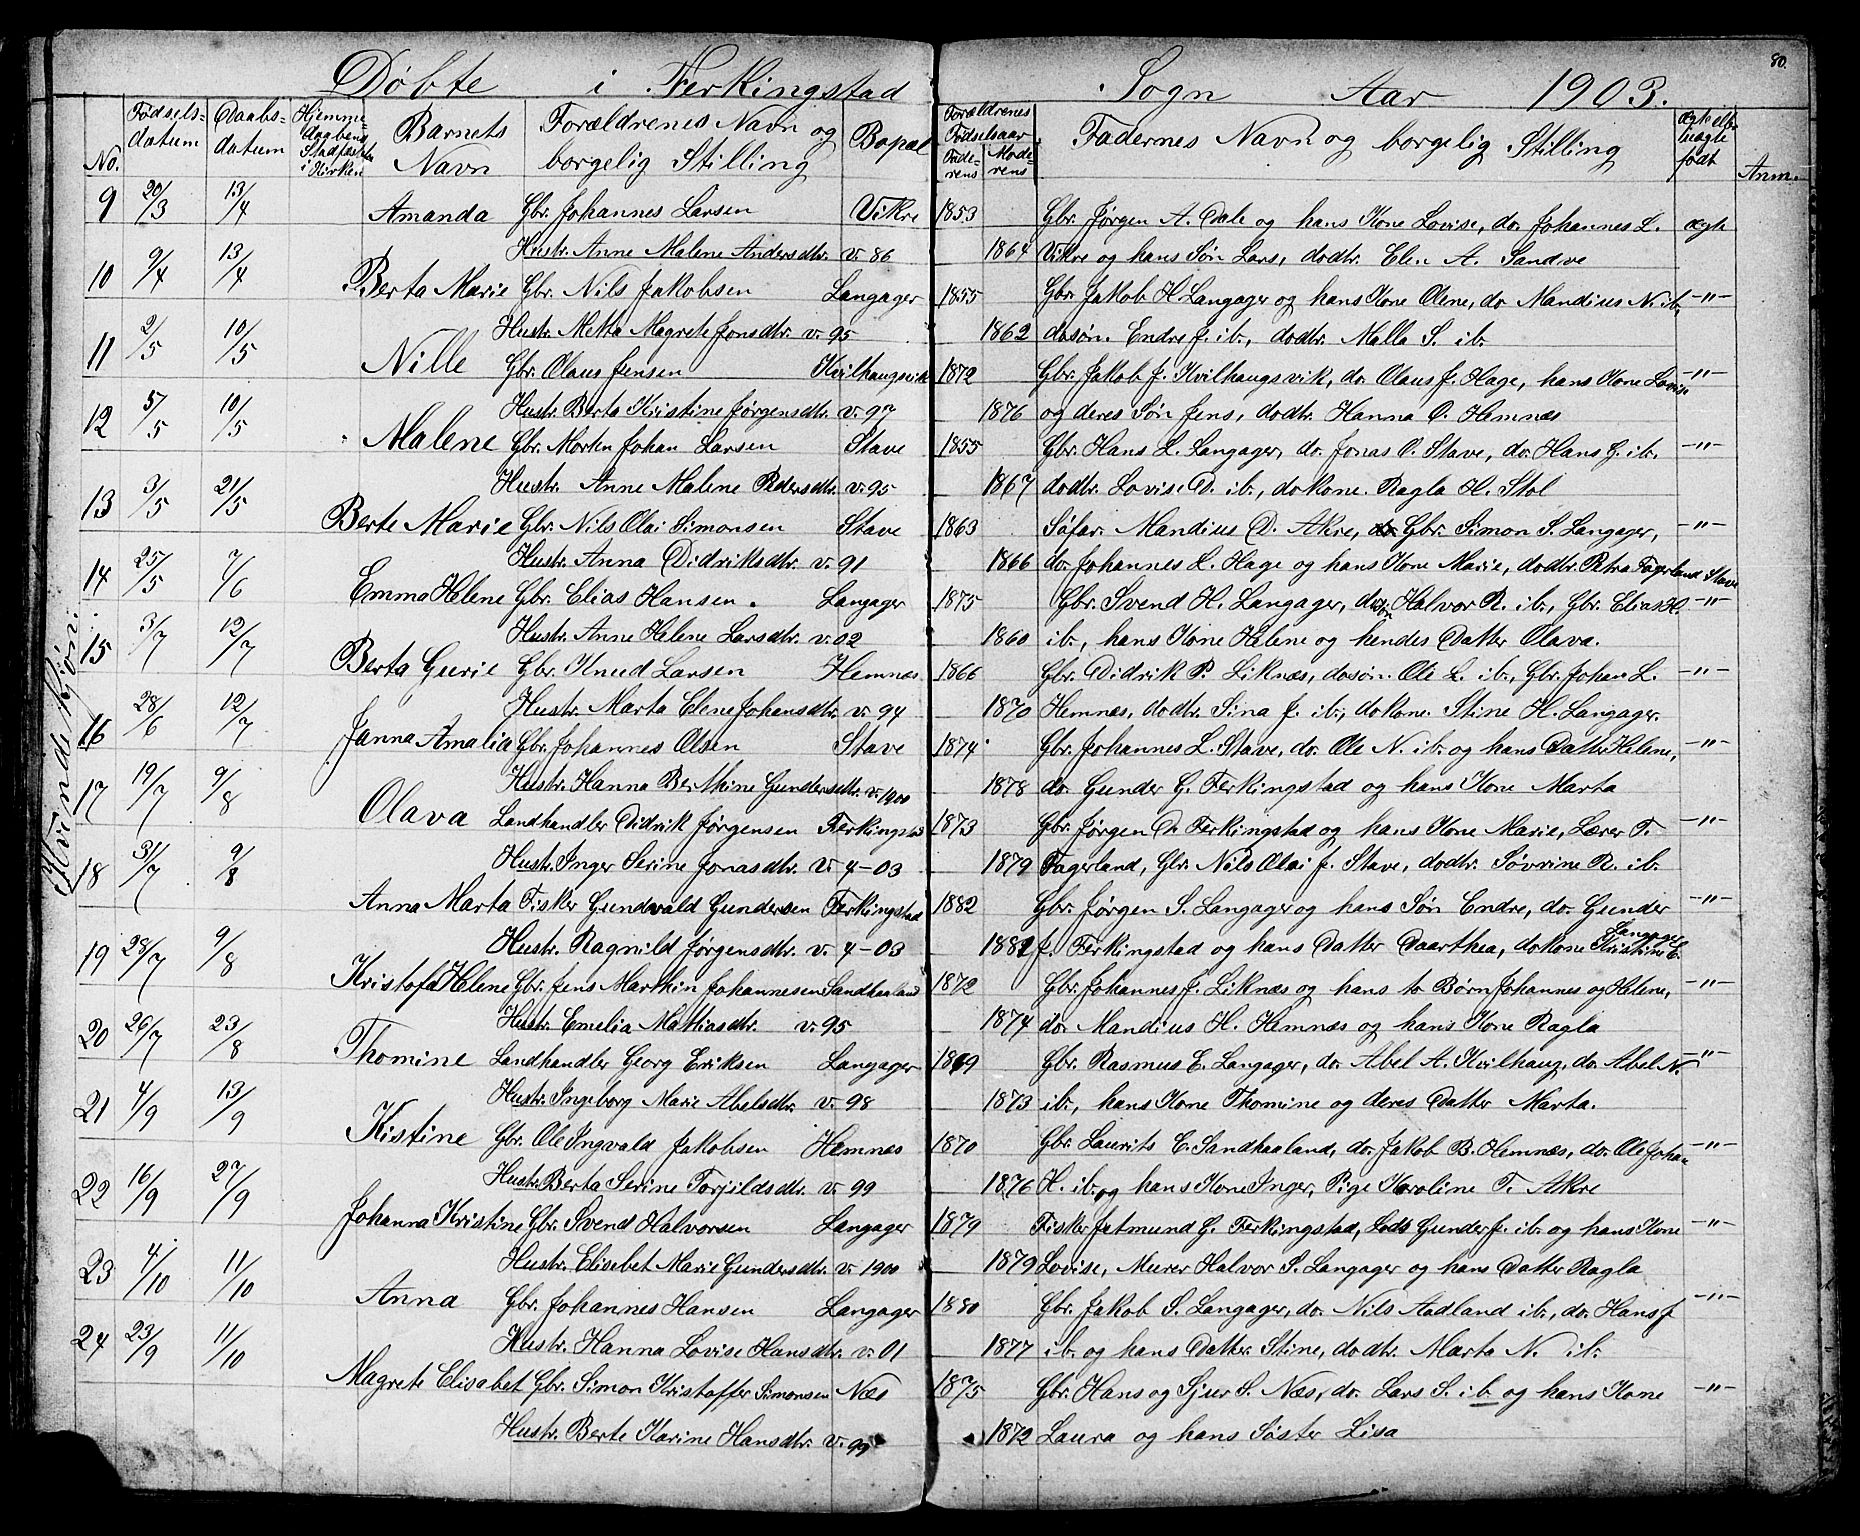 80.
Döbte i Ferkingstad Sogn Aar 1903.
No. Födsels-datum Daabs-datum Hjemme-daabens Stadfæstelse i Kirken Barnets Navn Forældrenes Navn og borgelig Stilling Bopæl Forældrenes Födselsaar Fade-rens Mode-rens Fadernes Navn og borgelig Stilling ægte ell. uægte födt Anm.
Kvindekjön:
9 20/3 13/4 Amanda Gbr. Johannes Larsen Vikre 1853 Gbr. Jørgen A. Dale og hans Kone Lovise, do. Johannes L. ægte
Hustr. Anne Malene Andersdtr. v. 86 1864 Vikre og hans Søn Lars, dodtr. Elen A. Sandve
10 9/4 13/4 Berta Marie Gbr. Nils Jakobsen Langager 1855 Gbr. Jakob H. Langager og hans Kone Olene, do. Mandius N. ib., -"-
Hustr. Metta Magrete Jonsdtr. v. 95 1862 dosøn. Endre J. ib., dodtr. Malla S. ib.
11 2/5 10/5 Nille Gbr. Olaus Jensen Kvilhaugsvik 1872 Gbr. Jakob J. Kvilhaugsvik, do. Olaus J. Hage, hans Kone Lovise -"-
Hustr. Berta Kristine Jørgensdtr. v. 97 1876 og deres Søn Jens, dodtr. Hanna O. Hemnæs
12 5/5 10/5 Malene Gbr. Morten Johan Larsen Stave 1855 Gbr. Hans L. Langager, do. Jonas O. Stave, do. Hans J. ib. -"-
Hustr. Anne Malene Pedersdtr. v. 95 1867 dodtr. Lovise D. ib., dokone. Ragla H. Stol
13 3/5 21/5 Berte Marie Gbr. Nils Olai Simonsen Stave 1863 Söfar. Mandius D. Akre, Gbr. Simon S. Langager, -"-
Hustr. Anna Didriksdtr. v. 91 1866 do. Johannes L. Hage og hans Kone Marie, dodtr. Petra Fagerland Stave
14 25/5 7/6 Emma Helene Gbr. Elias Hansen. Langager 1875 Gbr. Svend H. Langager, dosøn Halvor R. ib., Gbr. Elias H. -"-
Hustr. Anne Helene Larsdtr. v. 02 1860 ib., hans Kone Helene og hendes Datter Olava.
15 3/7 12/7 Berta Gurie Gbr. Knud Larsen Hemnæs 1866 Gbr. Didrik P. Liknæs, dosøn. Ole L. ib., Gbr. Johan L. -"-
Hustr. Marta Elene Johansdtr. v. 94 1870 Hemnæs, dodtr. Sina J. ib., dokone. Stine H. Langager.
16 28/6 12/7 Janna Amalia Gbr. Johannes Olsen Stave 1874 Gbr. Johannes L. Stave, do. Ole N. ib. og hans Datter Helene, -"-
Hustr. Hanna Berthine Gundersdtr. v. 1900 1878 do. Gunder G. Ferkingstad og hans Kone Marta
17 19/7 9/8 Olava Landhandler Didrik Jørgensen Ferkingstad 1873 Gbr. Jørgen D. Ferkingstad og hans Kone Marie, Lærer T. -"-
Hustr. Inger Serine Jonasdtr. v. 4-03 1879 Fagerland, Gbr. Nils Olai J. Stave, dodtr. Søvrine R. ib.
18 31/7 9/8 Anna Marta Fisker Gundvald Gundersen Ferkingstad 1882 Gbr. Jørgen S. Langager og hans Søn Endre, do. Gunder -"-
Hustr. Ragnild Jørgensdtr. v. 4-03 1882 J. Ferkingstad og hans Datter Daarthea, dokone Kristine E. Langager
19 28/7 9/8 Kristofa Helene Gbr. Jens Marthin Johannesen Sandhaaland 1872 Gbr. Johannes J. Liknæs og hans to Børn Johannes og Helene, -"-
Hustr. Emelia Mattiasdtr. v. 95 1874 do. Mandius H. Hemnæs og hans Kone Ragla
20 26/7 23/8 Thomine Landhandler Georg Eriksen Langager 1869 Gbr. Rasmus E. Langager, do. Abel A. Kvilhaug, do. Abel N. -"-
Hustr. Ingeborg Marie Abelsdtr. v. 98 1873 ib., hans Kone Thomine og deres Datter Marta.
21 4/9 13/9 Kistine Gbr. Ole Ingvald Jakobsen Hemnæs 1870 Gbr. Laurits C. Sandhaaland, do. Jakob B. Hemnæs, do. Ole Johan -"-
Hustr. Berta Serine Torjildsdtr. v. 99 1876 H. ib. og hans Kone Inger, Pige Karoline T. Akre
22 16/9 27/9 Johanna Kristine Gbr. Svend Halvorsen Langager 1879 Fisker Jatmund G. Ferkingstad, Lods Gunder J. ib. og hans Kone -"-
Hustr. Elisabet Marie Gundersdtr. v. 1900 1879 Lovise, Murer Halvor S. Langager og hans Datter Ragla
23 4/10 11/10 Anna Gbr. Johannes Hansen Langager 1880 Gbr. Jakob S. Langager, do. Nils Aadland ib., do. Hans J. -"-
Hustr. Hanna Lovise Hansdtr. v. 01 1877 ib. og hans Datter Stine, dodtr. Marta N. ib.
24 23/9 11/10 Magrete Elisabet Gbr. Simon Kristoffer Simonsen Næs 1875 Gbr. Hans og Sjur S. Næs, do. Lars S. ib. og hans Kone -"-
Hustr. Berte Karine Hansdtr. v. 99 1872 Laura og hans Søster Lisa